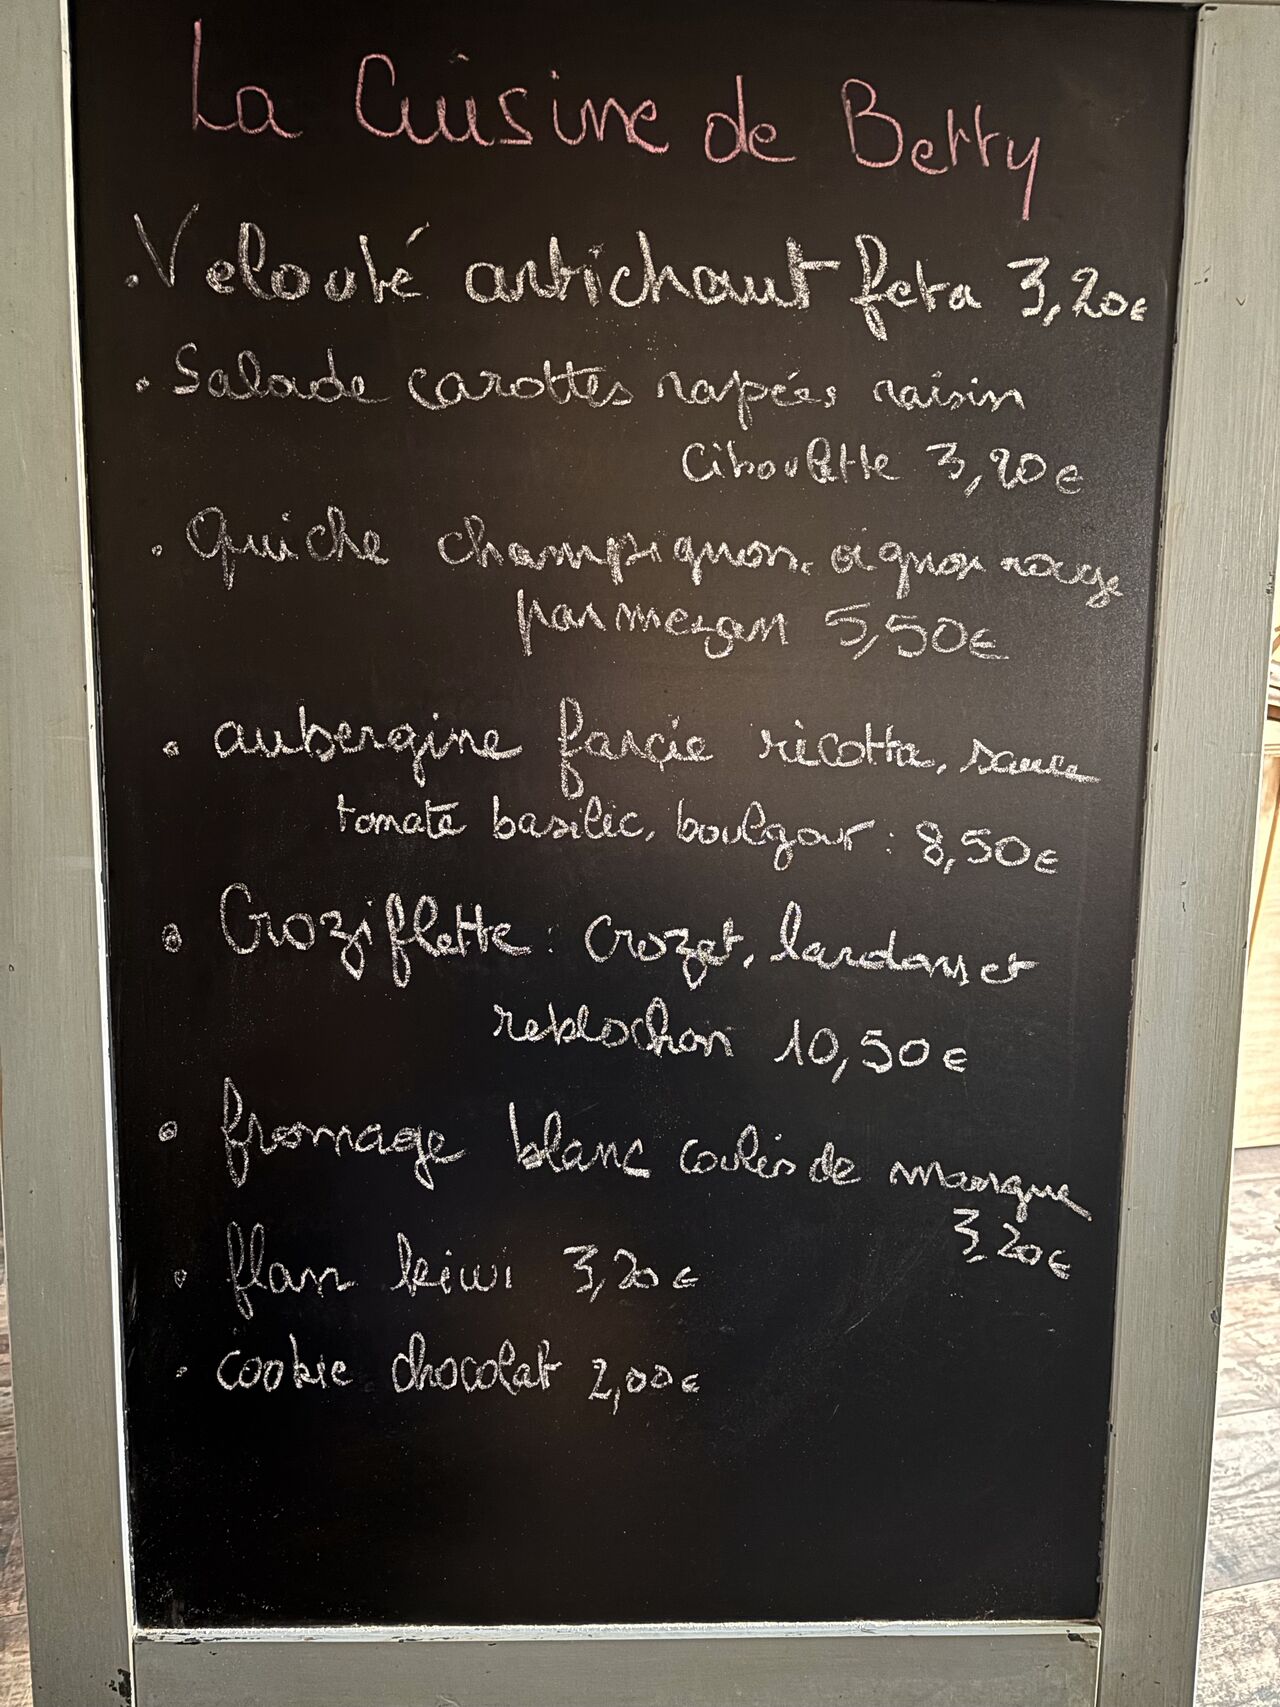 La Cuisine de Betty
. Velouté artichaut feta 3,20€
. Salade carottes rapées raisin
ciboulette 3,20€
. Quiche champignon, oignon rouge
parmezan 5,50€
. aubergine farçie ricotta, sauce
tomate basilic, boulgour : 8,50€
. Croziflette : Crozet, lardons et
reblochon 10,50€
. fromage blanc coulis de mangue
3,20€
. flan kiwi 3,20€
. cookie chocolat 2,00€